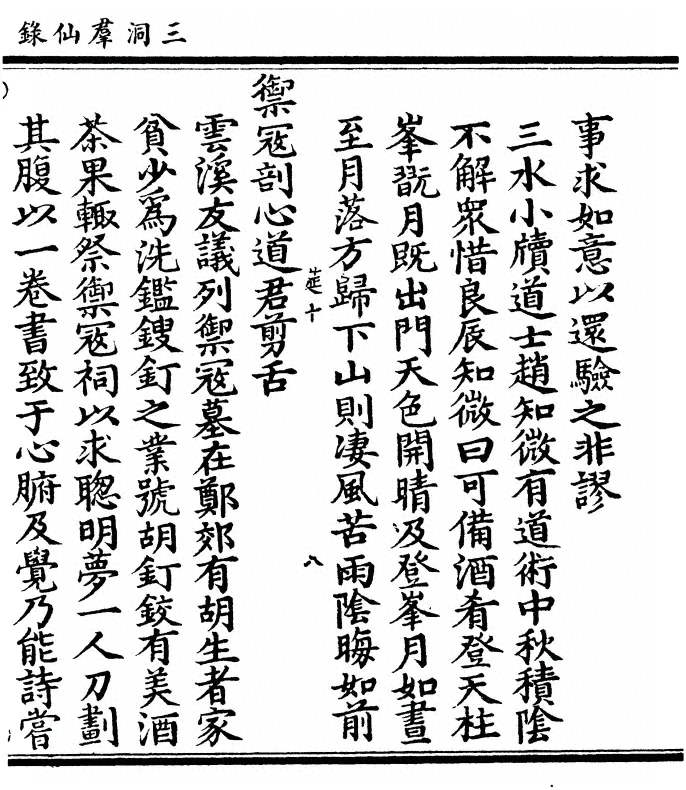 三洞羣仙錄
事求如意以還驗之非謬
三水小牘道士趙知微有道術中秋積陰
不解衆惜良辰知微曰可備酒肴登天柱
峯翫月既出門天色開晴及登峯月如晝
至月落方歸下山則凄風苦雨陰晦如前
筵十
八
禦冦剖心道君剪舌
雲溪友議列禦冦墓在鄭郊有胡生者家
貧少爲洗鑑鎪釘之業號胡釘鉸有美酒
茶果輙祭禦冦祠以求聦明夢一人刀劃
其腹以一卷書致于心腑及覺乃能詩嘗